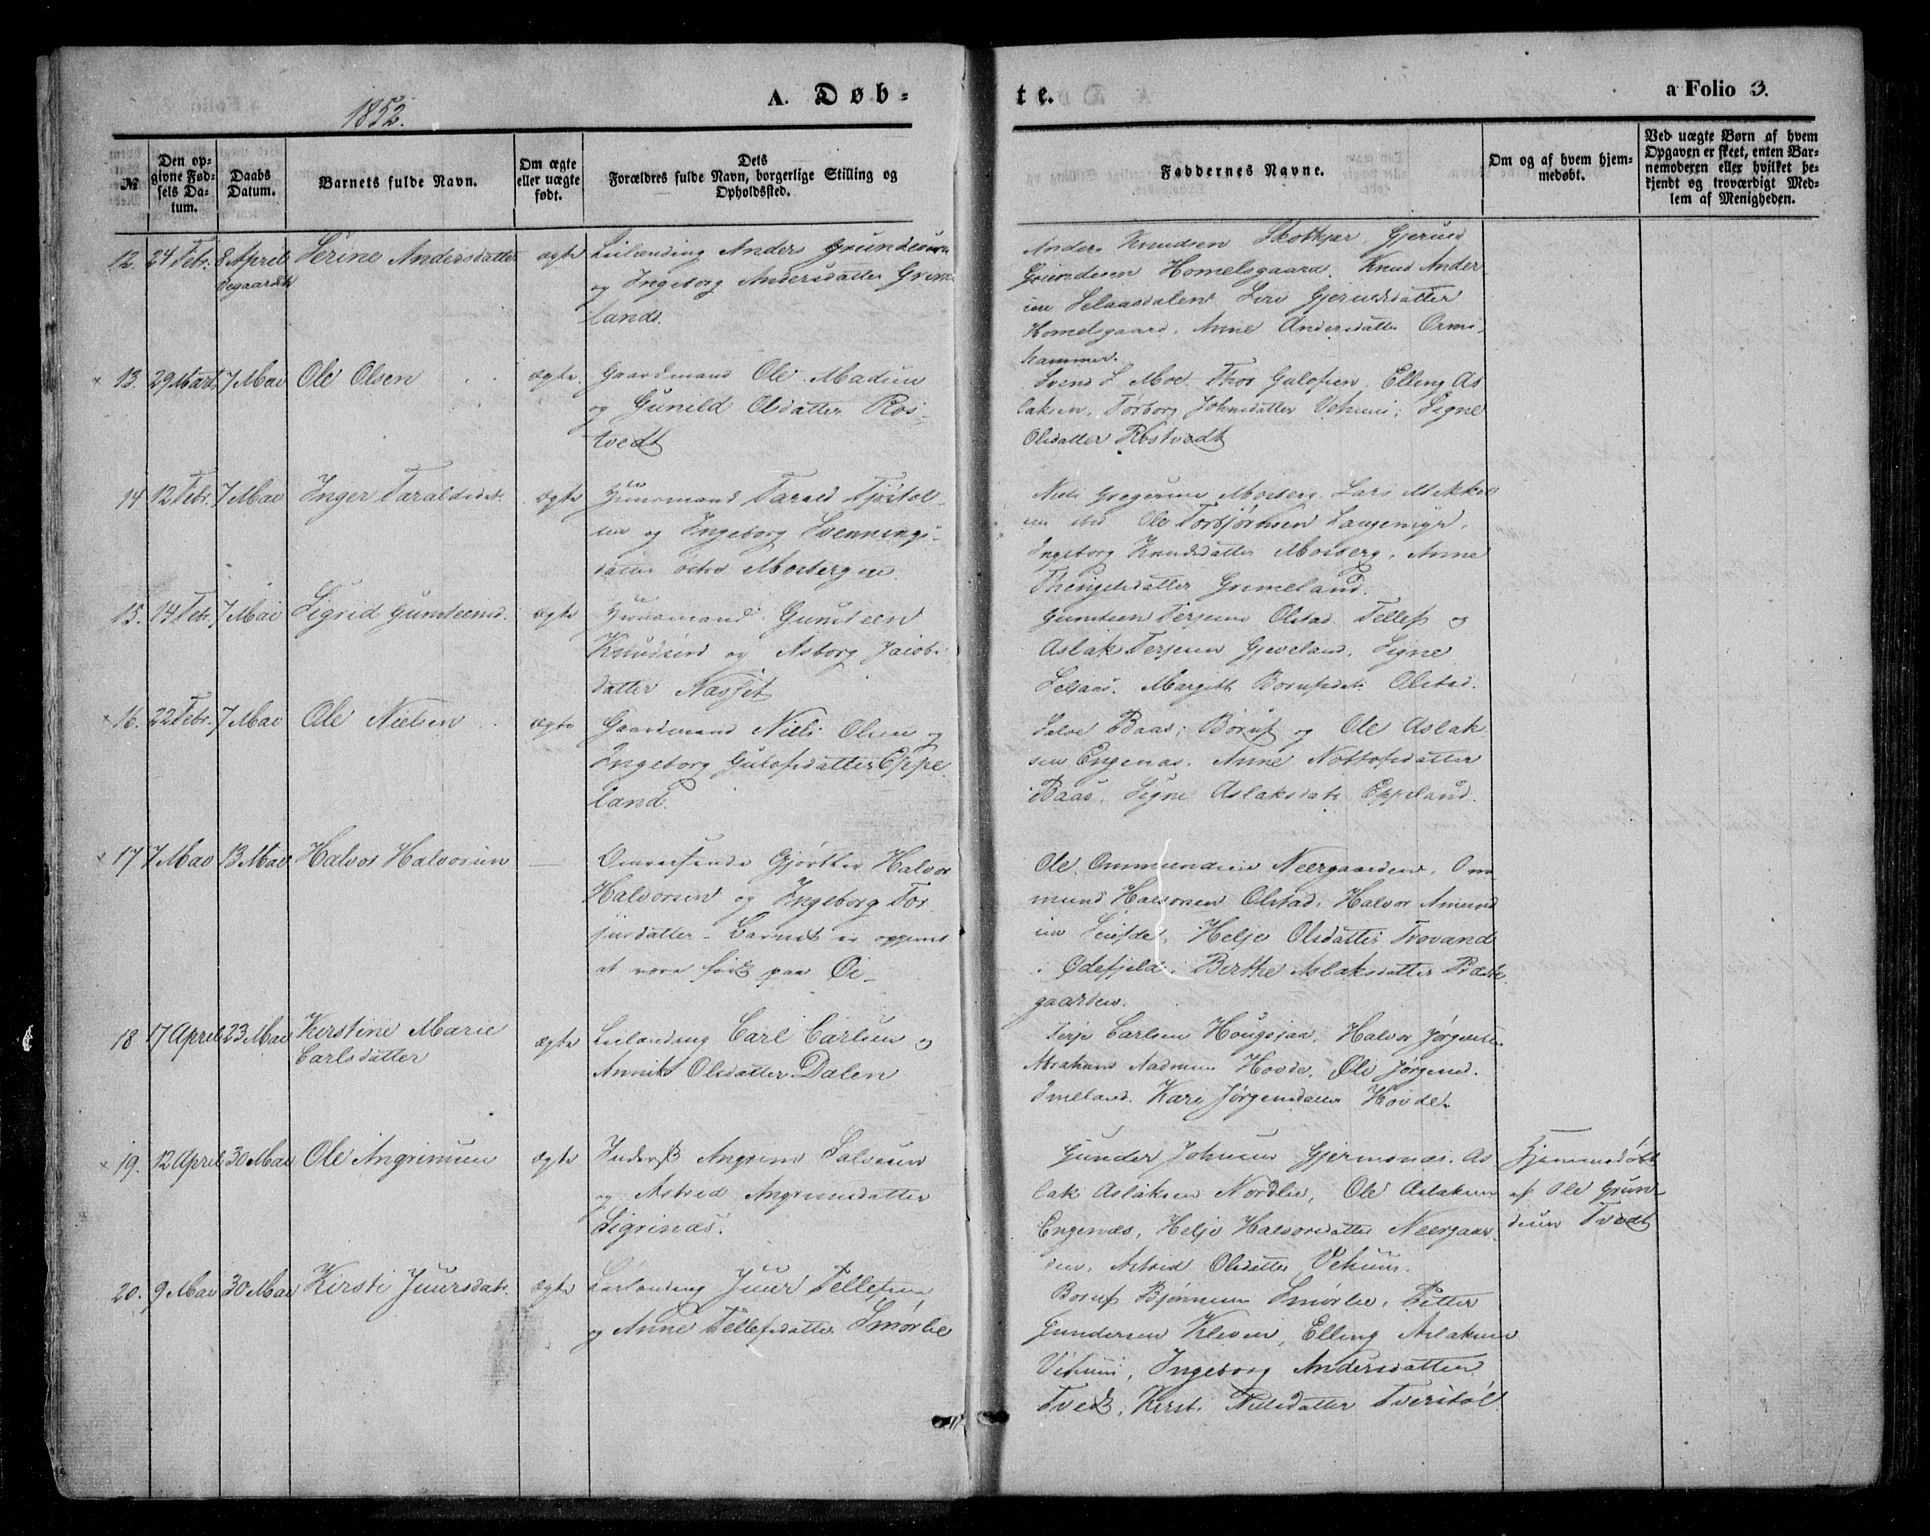 1852.
A. Døb-
te.
a Folio 3.
№
Den op-
givne Fød-
sels Da-
tum.
Daabs
Datum.
Barnets fulde Navn.
Om ægte
eller uægte
født.
Dets
Forældres fulde Navn, borgerlige Stilling og
Opholdssted.
Faddernes Navne.
Om og af hvem hjem-
medøbt.
Ved uægte Børn af hvem
Opgaven er skeet, enten Bar-
nemoderen eller hvilket be-
kjendt og troværdigt Med-
lem af Menigheden.
12. 24 Febr. 8 April Serine Andersdatter ægte
Leilænding Anders Grundesen
og Ingeborg Andersdatter Grim-
lands.
Anders Knudsen Skotkjær, Gjeruld
Grundesen Homelsgaard. Knud Ander-
sen Selaasdalen, Live Gjeruldsdatter
Homelsgaard, Anne Andersdatter Orms-
kammer.
13. 29 Mart. 7 Mai Ole Olsen ægte.
Gaardmand Ole Madsen
og Gunild Olsdatter Ros-
tvedt
Svend S. Moe. Thor Gulofsen, Elling As-
laksen, Torborg Johnsdatter Vehuus, Signe
Olsdatter Rostvedt
14 12 Febr. 7 Mai Inger Taraldsdat. ægte
Huusmand Tarald Tjøstol-
sen og Ingeborg Svennings-
datter Mosberg
Niels Gregersen Mosberg. Lars Mikkel-
sen Ole Torbjørnsen Langemyr,
Ingeborg Knudsdatter Mosberg, Anne
Thengelsdatter Grimeland.
15. 14 Febr. 7 Mai Sigrid Gunsteensd. ægte
Huusmand Gunsteen
Knudsen og Asborg Jacobs-
datter Næsset
Gunsteen Terjesen Olstad Tellef og
Aslak Terjesen Gjeveland, Signe
Selaas. Margith Borufsdat. Olstad.
16. 22 Febr. 7 Mai Ole Nielsen ægte
Gaardmand Niels Olsen og
Ingeborg Gulofsdatter Eppe-
land.
Salve Baas, Boruf og Ole Aslak-
sen Engenæs. Anne Nottofsdatter
Baas, Signe Aslaksdat. Eppeland.
17 7 Mai 13 Mai Halvor Halvorsen —
Omreisende Gjørtler Halvor
Halvorsen og Ingeborg Tor-
jusdatter - Barnet er opgivet
at være født paa Øi-
Ole Ommundsen Neergaarden, Om-
mund Halvorsen Olstad, Halvor Amund-
sen Helje Olsdatter Trovand
i Ødefjeld, Berthe Aslaksdatter Præste-
gaarden.
18 17 April 23 Mai Kirstine Marie
Carlsdatter ægte
Leilænding Carl Carlsen og
Annik Olsdatter Dalen
Terje Carlsen Hougsjaa, Halvor Jørgensen
Abraham Aadnesen Hovde, Ole Jørgens.
Imeland. Kari Jørgensdatter Hovde.
19. 12 April 30 Mai Ole Angrimsen ægte
Inderst Angrim Salvesen
og Astrid Angrimsdatter
Sigrinæs.
Gunder Johnsen Gjermonæs. As-
lak Aslaksen Nordlie, Ole Aslaksen
Engenæs, Helje Halvorsdatter Neergaar-
den, Astrid Olsdatter Vehuus.
Hjemmedøbt
af Ole Grun-
desen Tvedt
20. 9 Mai 30 Mai Kirsti Juursdat. ægte
Leilænding Juur Tellefsen
og Anne Tellefsdatter Smørlie
Boruf Bjørnsen Smørlie, Petter
Gundersen Kleven, Elling Aslaksen
Vehuus, Ingeborg Andersdatter
Tvedt, Kirsti Nilsdatter Tverstøl